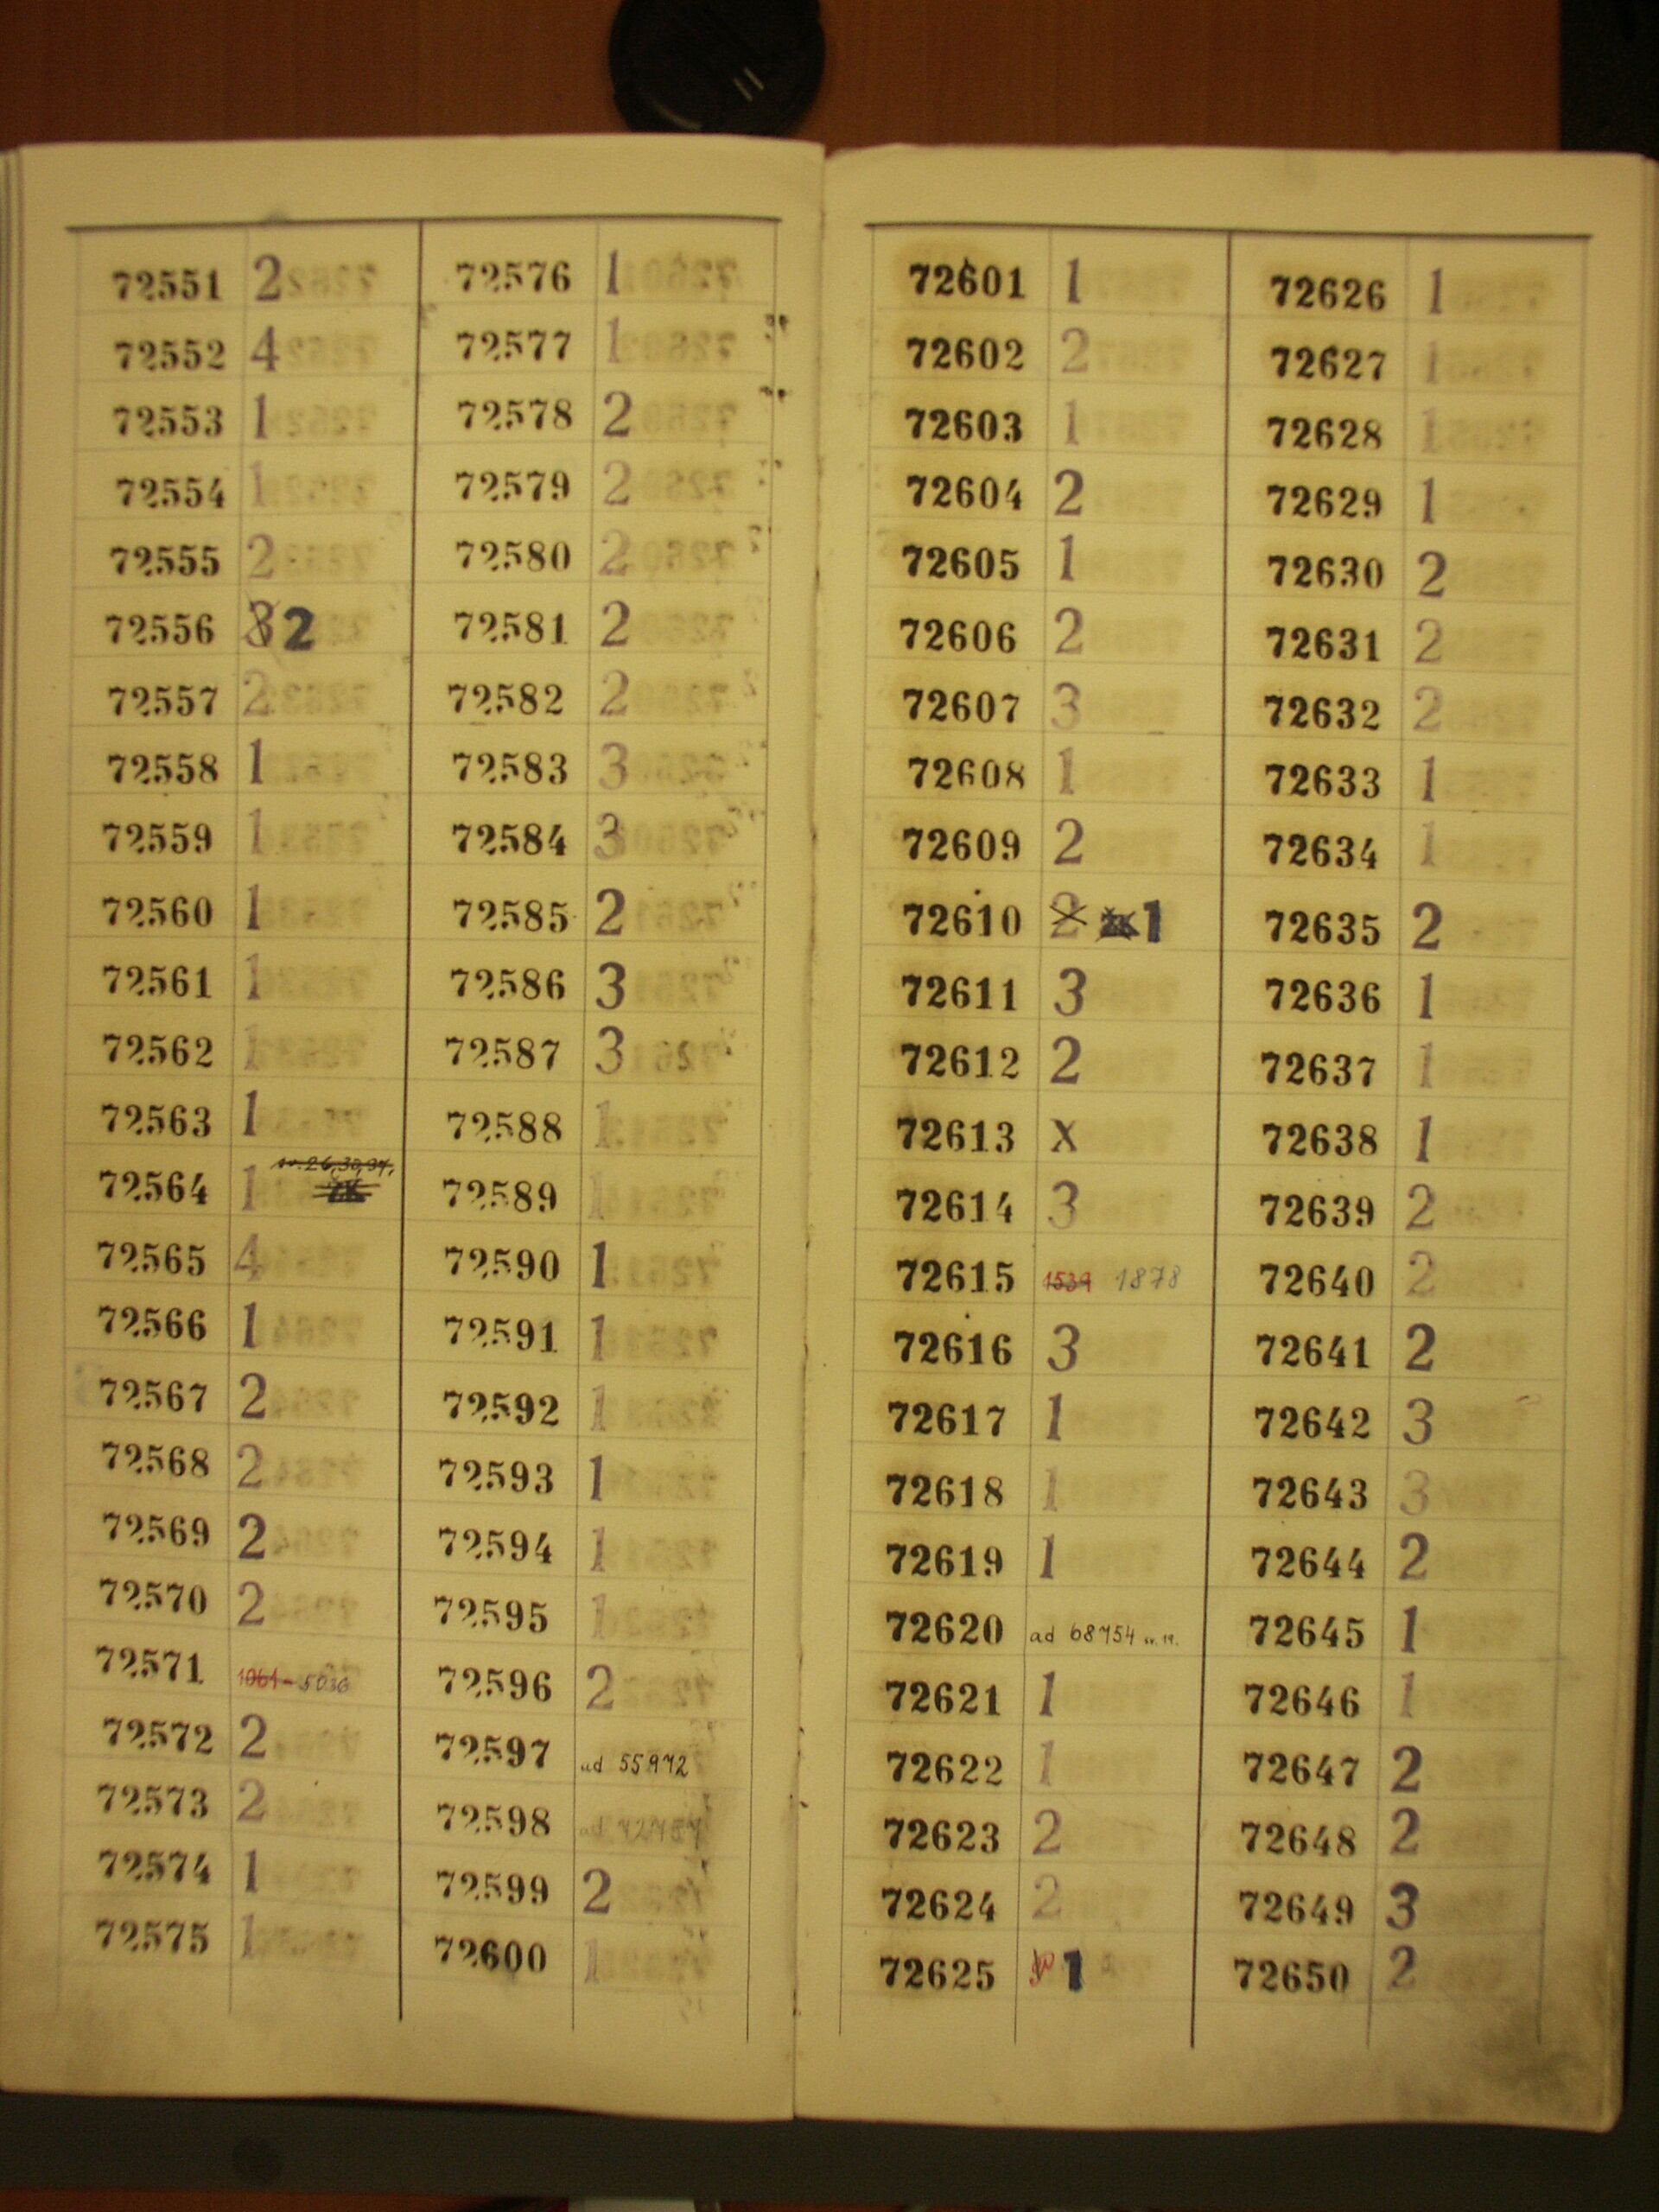 72551 2
72552 4
72553 1
72554 1
72555 2
72556 3 2
72557 2
72558 1
72559 1
72560 1
72561 1
72562 1
72563 1
72564 1
72565 4
72566 1
72567 2
72568 2
72569 2
72570 2
72571 1061 - 5036
72572 2
72573 2
72574 1
72575 1
72576 1
72577 1
72578 2
72579 2
72580 2
72581 2
72582 2
72583 3
72584 3
72585 2
72586 3
72587 3
72588 1
72589 1
72590 1
72591 1
72592 1
72593 1
72594 1
72595 1
72596 2
72597 ad 55972
72598 ad
72599 2
72600 1
72601 1
72602 2
72603 1
72604 2
72605 1
72606 2
72607 3
72608 1
72609 2
72610 2 1
72611 3
72612 2
72613 x
72614 3
72615 1539 1878
72616 3
72617 1
72618 1
72619 1
72620 ad 68754
72621 1
72622 1
72623 2
72624 2
72625 1
72626 1
72627 1
72628 1
72629 1
72630 2
72631 2
72632 2
72633 1
72634 1
72635 2
72636 1
72637 1
72638 1
72639 2
72640 2
72641 2
72642 3
72643 3
72644 2
72645 1
72646 1
72647 2
72648 2
72649 3
72650 2